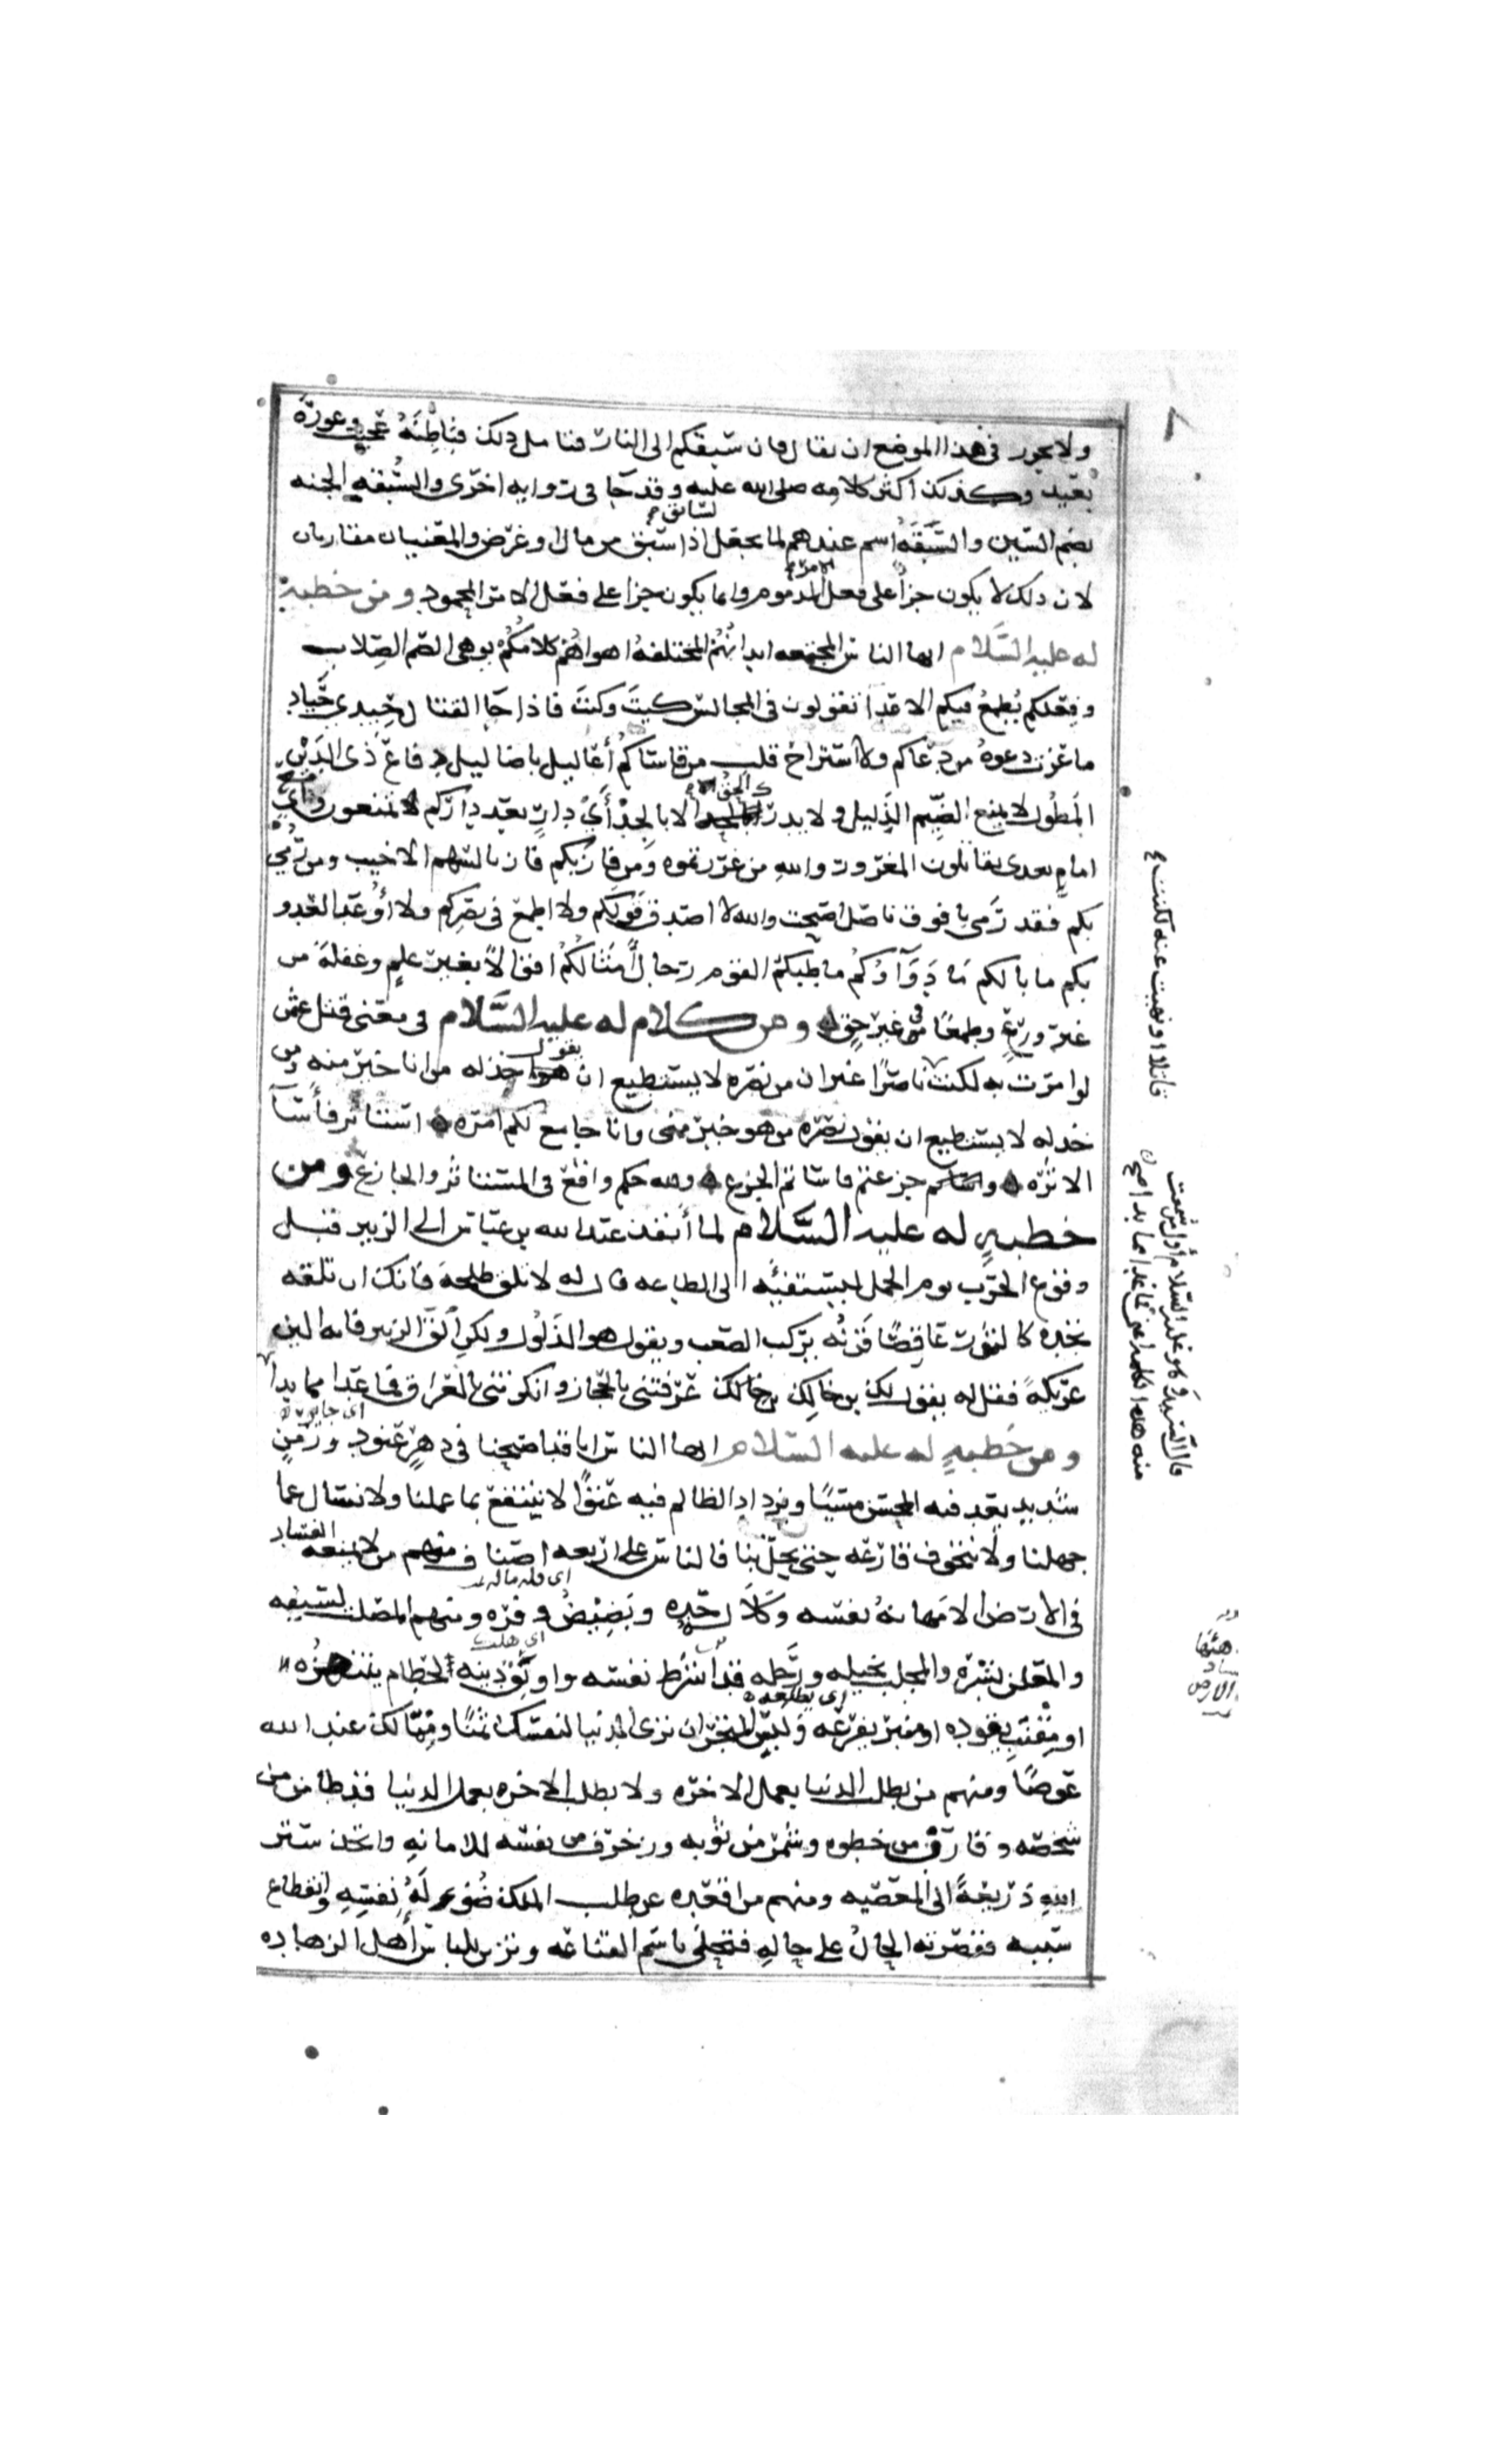 ولا يجوز في هذا الموضع ان يقال فان سبقكم الى النار فتامل ذلك فباطنه عجيب وغوره
بعيد وكذلك اكثر كلامه صلى الله عليه وقد جا في روايه اخرى والسُّبقه الجنه
بضم السين والسَّبَقَه اسم عندهم لما يجعل للسابق اذا سبق من مال او عرض والمعنيان متقاربان
لان ذلك لا يكون جزا على فعل الامر المذموم وانما يكون جزا على فعل الامر المحمود ومن خطبة
له عليه السَّلام ايها الناس المجتمعه ابدانهم المختلفه اهواهم كلامكم يوهي الصم الصلاب
وفعلكم يُطمعُ فيكم الاعدا تقولون في المجالس كيتَ وكيتَ فاذا جا القتال قلتم حِيدي حَيادِ
ما عزت دعوة من دعاكم ولا استراح قلب من قاساكم أعاليل باضاليل دفاع ذي الدَّين
المَطُول لا يمنع الضيم الذليل ولا يدرك الحق الا بالجد أيَّ دارٍ بعد داركم تمنعون ومع أي
امام بعدى تقاتلون المغرور والله من غررتموه وَمن فاز بكم فاز بالسهم الاخيب ومن رُمي
بكم فقد رَمى بافوق ناصل اصبحت والله لا اصدق قولكم ولا اطمع في نصركم ولا أُوعد العدو
بكم ما بالكم مَا دَوَآؤكُم ما طبكم القوم رجالٌ أمثالكُم اقولاً بغير علم وغفلةً من
غير ورع وطمعًا في غير حق ومن كلام له عليه السَّلام في معنى قتل عثمن
لو امرت به لكنت ناصرًا غير ان من نصره لا يستطيع ان يقول خذله من انا خير منه ومن
خذله لا يستطيع ان يقول نصره من هو خير مني وانا جامع لكم امره استاثر فأسآ
الاثره وجزعتم فاساتم الجزع ولله حكم واقع في المستاثر والجازع ومن
خطبةٍ له عليه السَّلام لما أنفذ عبد الله بن عباس الى الزبير قبل
وقوع الحرب يوم الجمل ليستفيئه الى طاعه قال له لا تلق طلحة فانك ان تلقه
تجده كالثور عاقصًا قرنُه يركب الصعب ويقول هو الذَلُول ولكن ٱلقَ الزبير فانه الين
عريكةً فقل له يقول لك بن خالِك بن خالك عَرفتني بالحجاز وانكرتني بالعراق فما عدا مما بدا
ومن خطبةٍ له عليه السلام ايها الناس انا قد اصبحنا في دهرٍ عَنود وزمنٍ
اى جاير
شديد يعد فيه المحسن مسيًا ويزداد الظالم فيه عتوًّا لا ننتفع بما علمنا ولا نسال عما
جهلنا ولا نتخوف قارعه حتى تحلّ بنا فالناس على اربعه اصناف منهم من لا يمنعه الفساد
في الارض الا مَهانةُ نفسه وكَلالُ حَدِه ونَضِيضُ وفره ومنهم المصلت لسيفه
اى قله ماله
والمعلن بشره والمجلب بخيله ورَجله قد أشرَط نفسه واوبق دينه لحطام ينتهزه
اى هلك
او مِقْنَب يقوده او منبر يفرعه ولبيس المتجر ان ترى الدنيا لنفسك ثمنًا ومما لك عند الله
اى يطلعه
عوضًا ومنهم من يطلب الدنيا بعمل الاخره ولا يطلب الاخره بعمل الدنيا قد طامن من
شخصه وقارب من خطوه وشمر من ثوبه وزخرف من نفسه للامانهِ واتخذ ستر
اللهِ ذريعةً الى المعصيه ومنهم من اقعده عن طلب الملك ضؤولَةُ نفسِهِ وانقطاع
سببه فقصرته الحالُ على حالهِ فتحلّى باسم القناعه وتزين بلباس أهل الزهاده
قاتلا او نهيت عنه لكنت
قال السيد وهو عليه السلام أول من سُمعت
منه هذه الكلمه اعنى فما عدا مما بدا صح